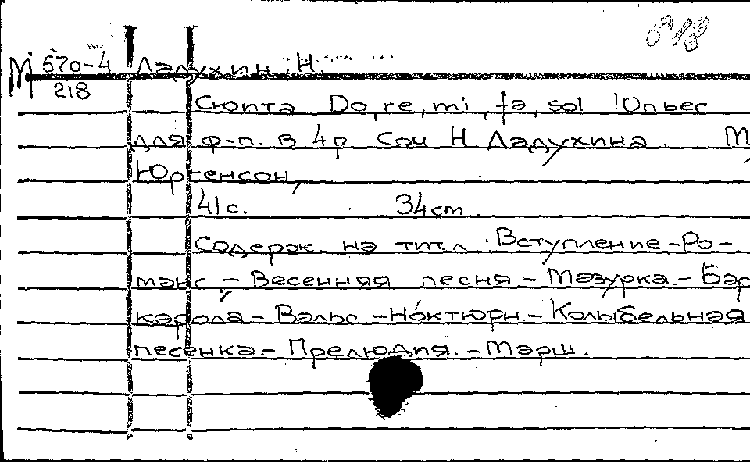 М 670-4 Ладухин Н.
218
Сюита Do, re, mi, fa, sol
для ф-п. в 4 р. Соч Н Ладухина М
Юргенсон,
41 с. 34 cm.
Содерж. на титл. Вступление - Ро-
манс - Весенняя песня - Мазурка - Бар
карола - Вальс - Ноктюрн - Колыбельная
песенка - Прелюдия. - Марш.